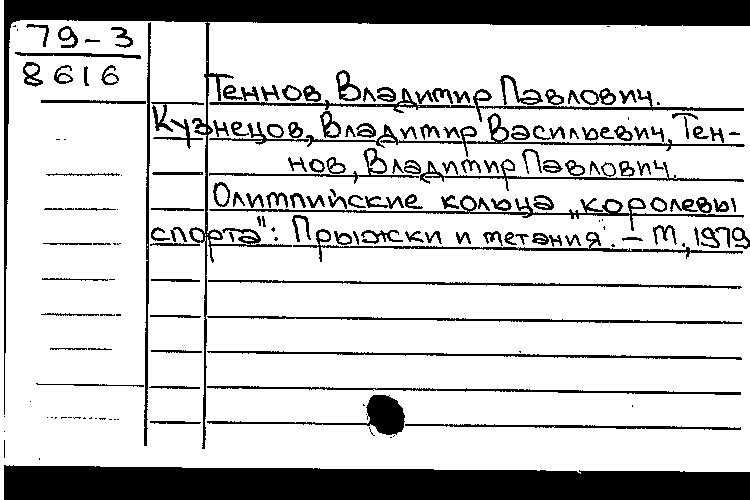 79-3
8616
Теннов, Владимир Павлович.
Кузнецов, Владимир Васильевич, Тен-
нов, Владимир Павлович.
Олимпийские кольца „королевы
спорта": Прыжки и метания. – М., 1979